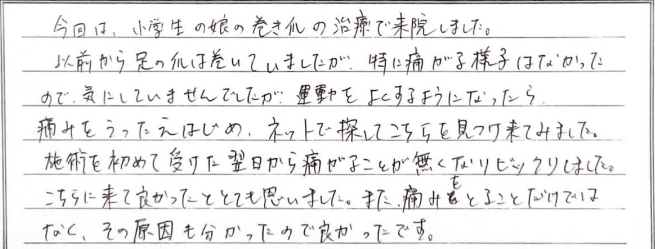 今回は、小学生の娘の巻き爪の治療で来院しました。
以前から足の爪は巻いていましたが、特に痛がる様子はなかった
ので、気にしていませんでしたが、運動をよくするようになったら、
痛みをうったえはじめ、ネットで探してこちらを見つけ来てみました。
施術を初めて受けた翌日から痛がることが無くなりビックリしました。
こちらに来て良かったととても思いました。また、痛みをとることだけでは
なく、その原因も分かったので良かったです。